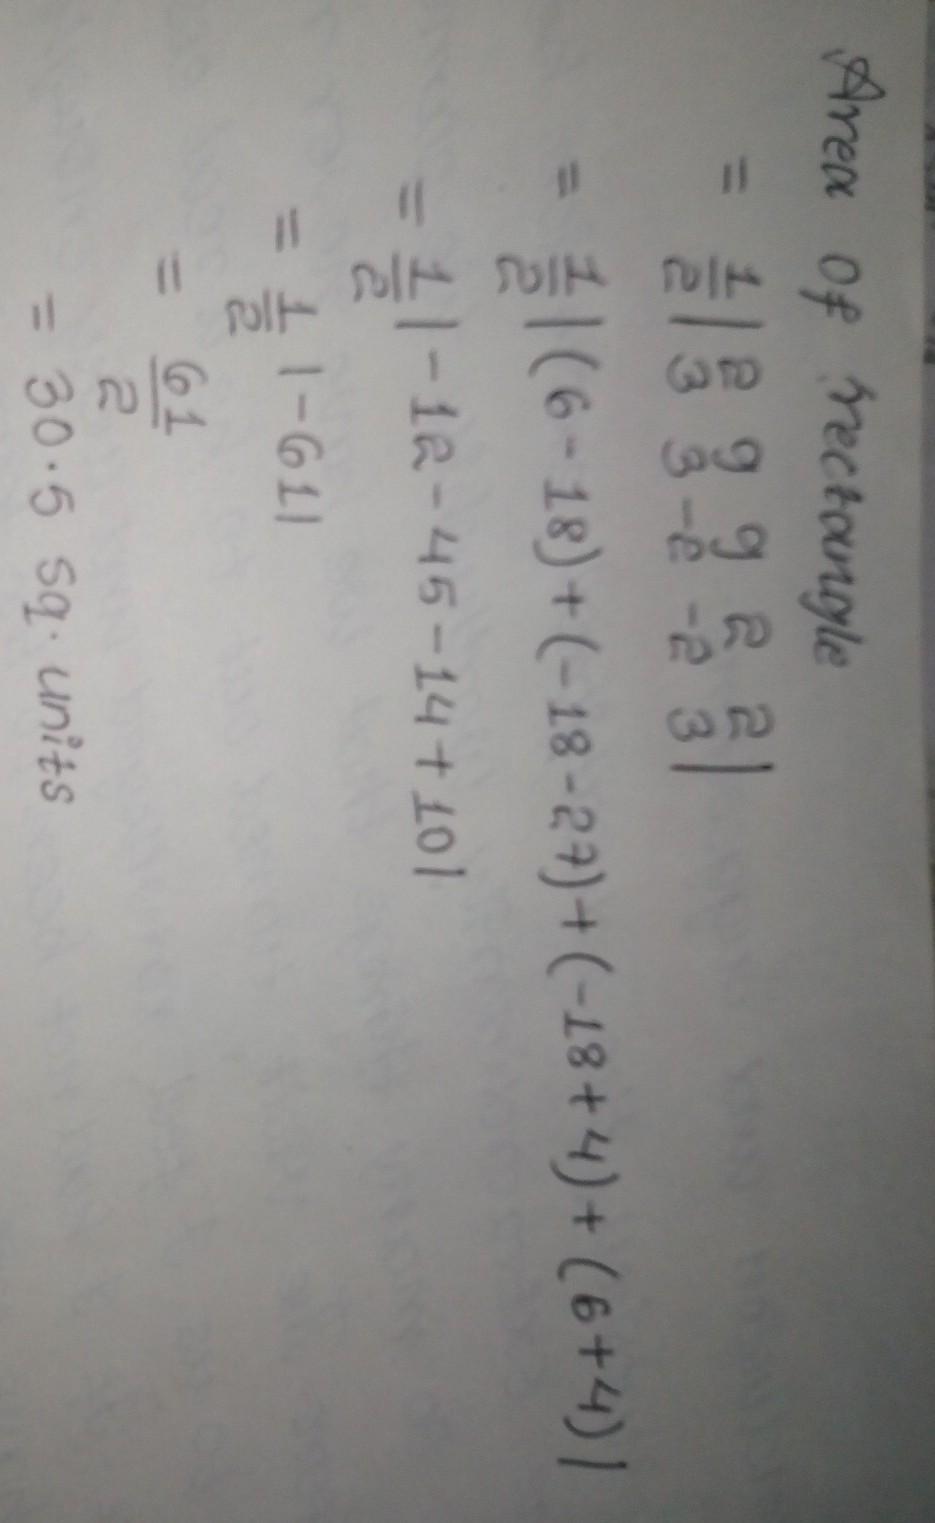 Area of rectangle
= 1/2 | 2 9 9 2 2 |
3 3 -2 -2 3
= 1/2 | (6 - 18) + (-18 - 27) + (-18 + 4) + (6 + 4) |
= 1/2 | -12 - 45 - 14 + 10 |
= 1/2 | -61 |
= 61/2
= 30.5 sq. units